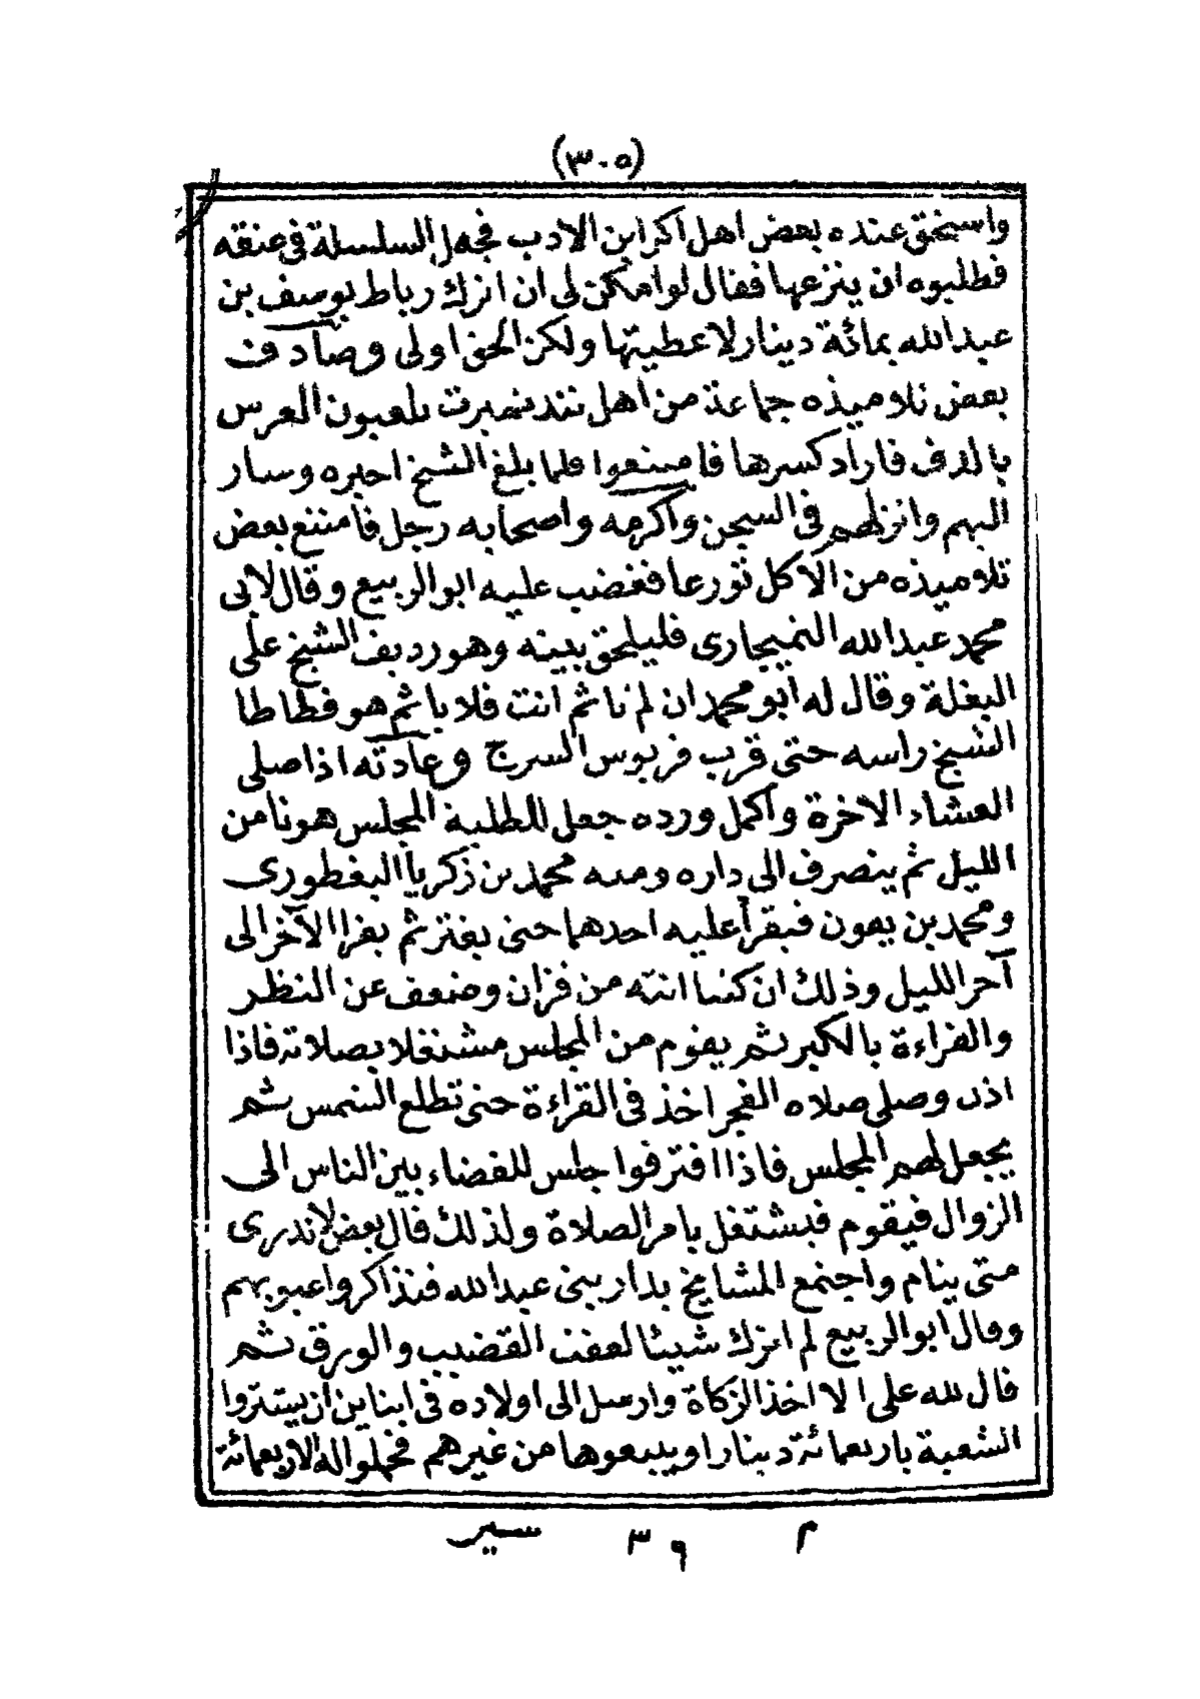 (٣٠٥)
واستحق عنده بعض اهل اكراين الادب فجعل السلسلة فى عنقه
فطلبوه ان ينزعها فقال لو امكن لى ان انزك رباط يوسف بن
عبدالله بمائة دينار لاعطيتها ولكن الحق اولى وصادفت
بعض تلاميذه جماعة من اهل تندنميرت يلعبون العرس
بالدف فاراد كسرها فامتنعوا فلما بلغ الشيخ اخبره وسار
اليهم وانزلهم فى السجن واكرمه واصحابه رجل فامتنع بعض
تلاميذه من الاكل تورعا فغضب عليه ابوالربيع وقال لابى
محمد عبدالله النميجارى فليلحق ببيته وهو رديف الشيخ على
البغلة وقال له ابو محمد ان لم تاثم انت فلا ياثم هو فطاطا
الشيخ راسه حتى قرب قربوس السرج وعادته اذا صلى
العشاء الاخرة واكمل ورده جعل للطلبة المجلس هونا من
الليل ثم ينصرف الى داره ومعه محمد بن زكريا البغطورى
ومحمد بن يعون فيقرأ عليه احدهما حتى يفتر ثم يقرا الآخر الى
آخر الليل وذلك ان كتبا اتته من فزان وضعف عن النظر
والقراءة بالكبر ثم يقوم من المجلس مشتغلا بصلاته فاذا
اذن وصلى صلاه الفجر اخذ فى القراءة حتى تطلع الشمس ثم
يجعل لهم المجلس فاذا افترقوا جلس للقضاء بين الناس الى
الزوال فيقوم فيشتغل بامر الصلاة ولذلك قال بعض لاندرى
متى ينام واجتمع المشايخ بدار بنى عبدالله فتذاكروا عيوبهم
وقال ابوالربيع لم اترك شيئا لعفت القضيب والورق ثم
قال لله على الا اخذ الزكاة وارسل الى اولاده فى ابناين ان يشتروا
الشعبة باربعمائة دينار او يبيعوها من غيرهم فحملوا اله الاربعمائة
م ٣٩ سير